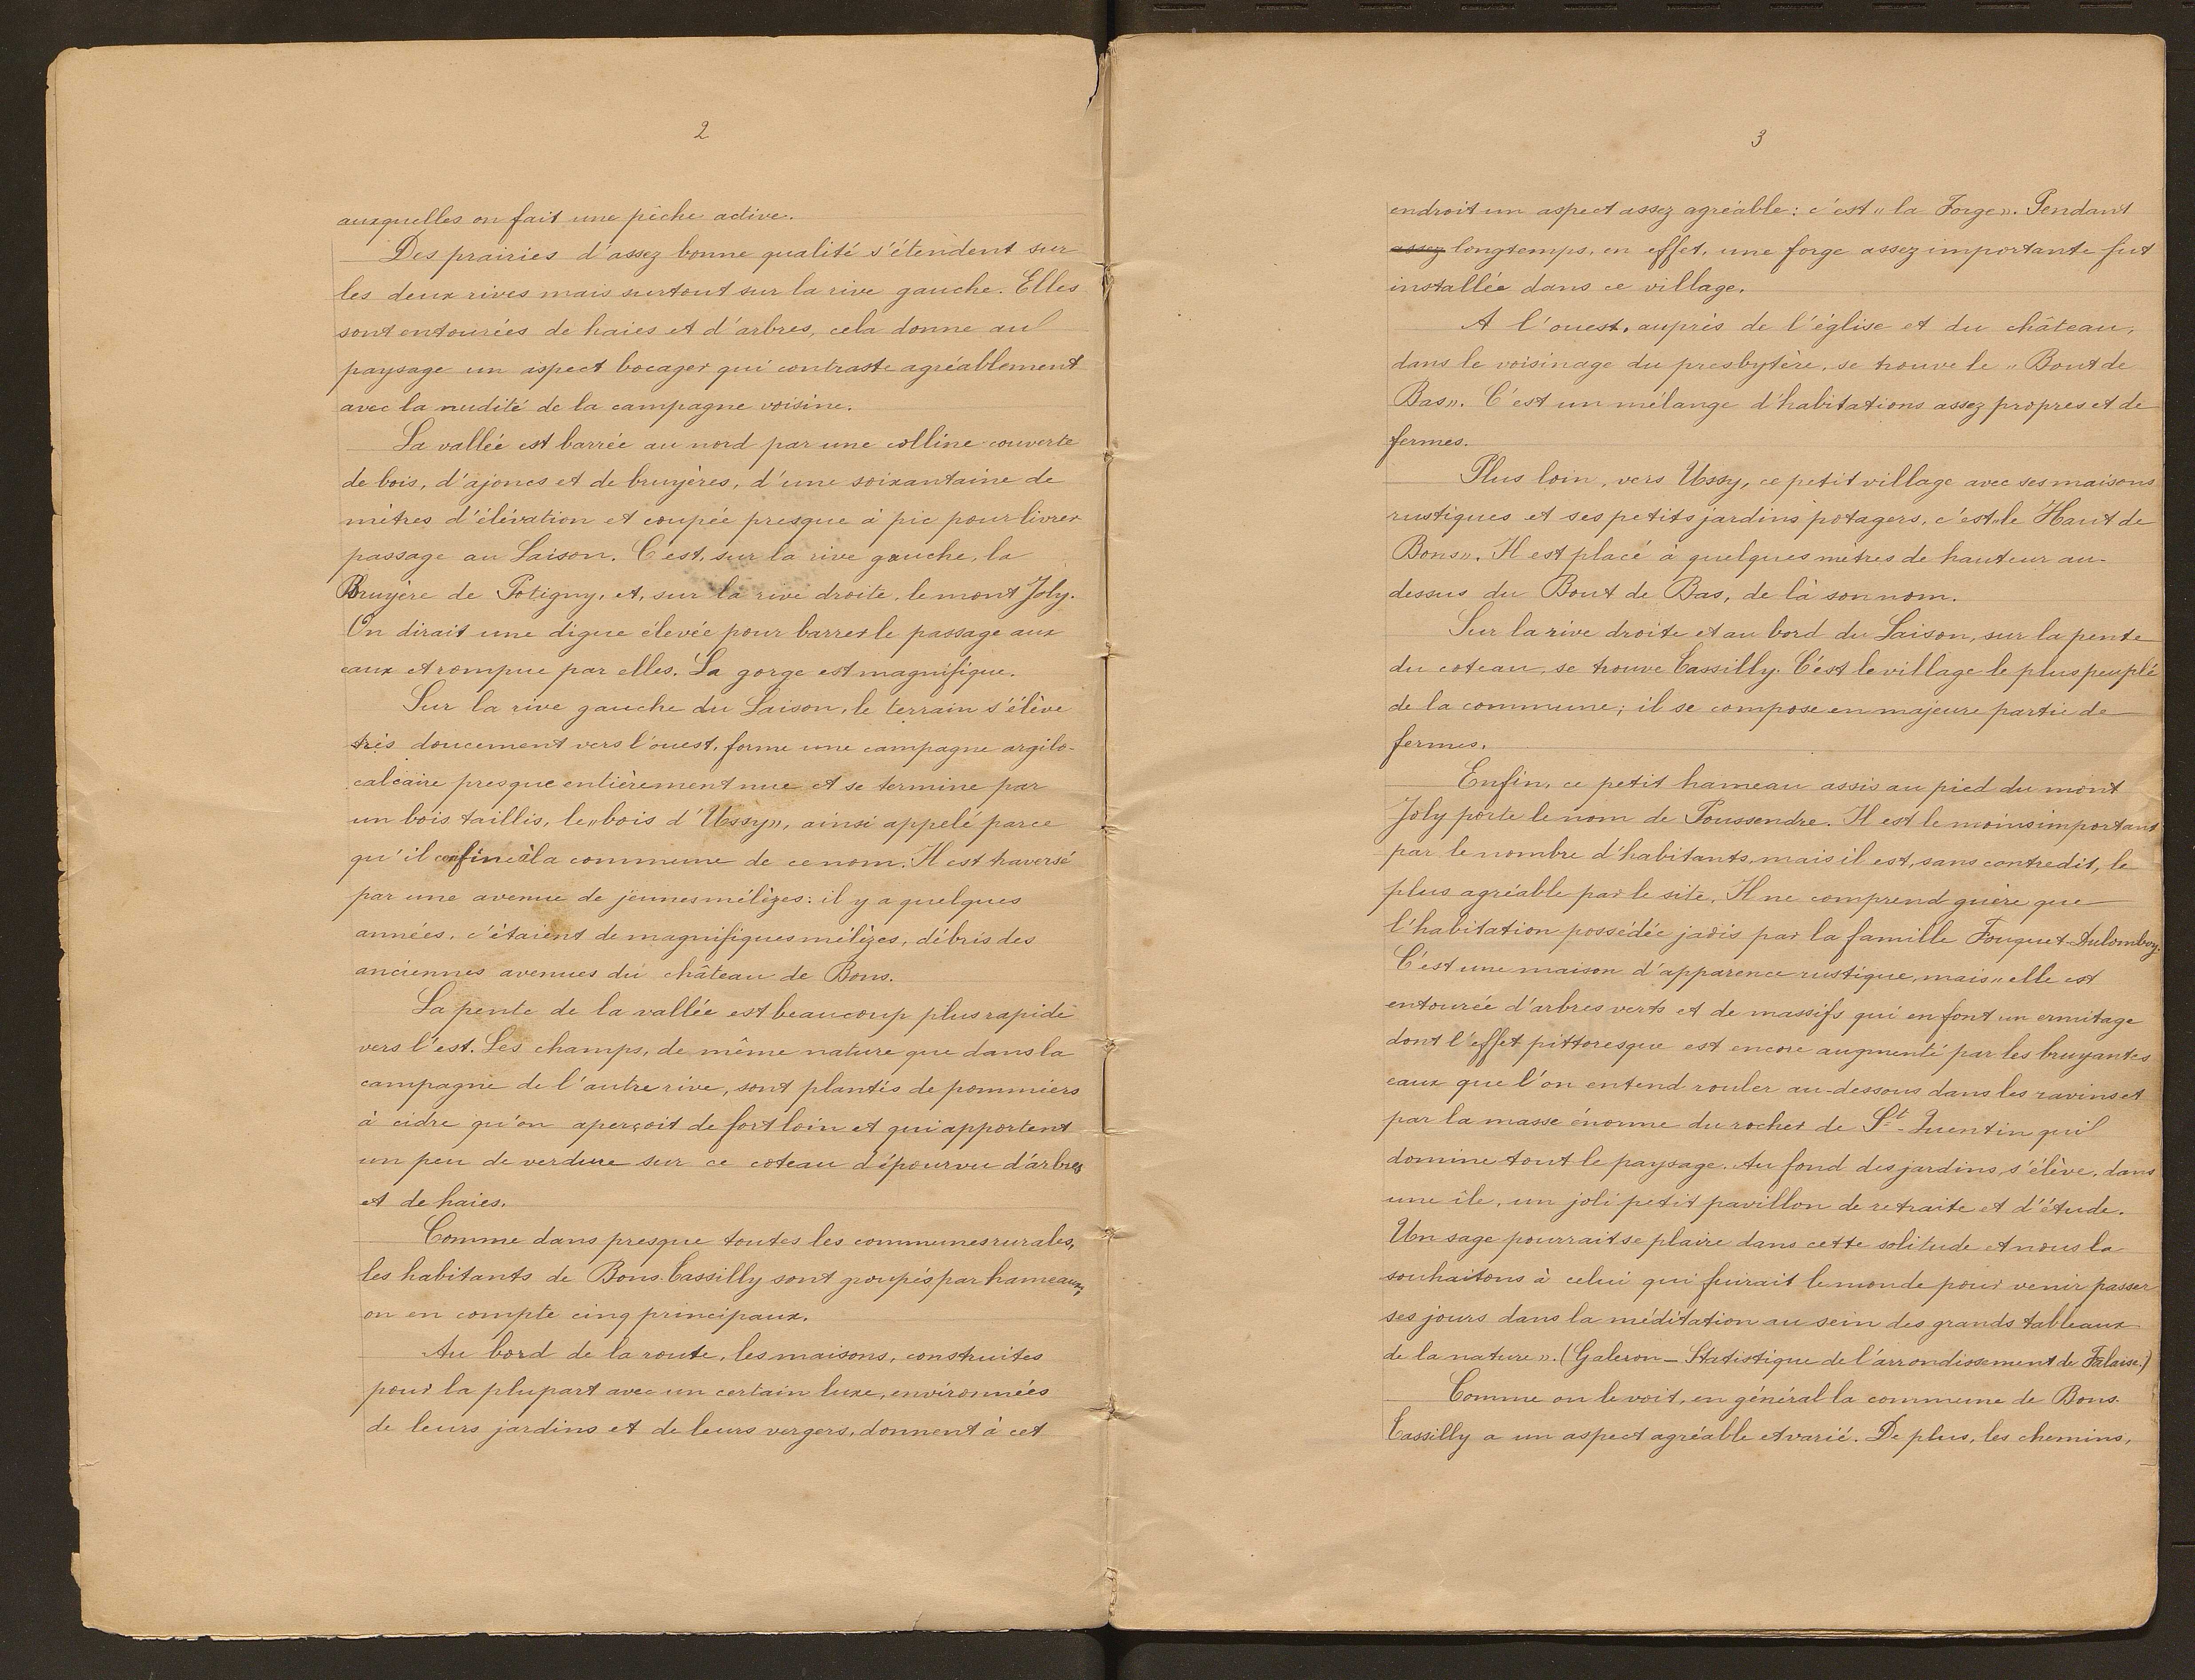 2
auxquelles on fait une pêche active.
Des prairies d'assez bonne qualité s'étendent sur
les deux rives mais surtout sur la rive gauche. Elles
sont entourées de haies et d'arbres, cela donne au
paysage un aspect bocager qui contraste agréablement
avec la nudité de la campagne voisine.
La vallée est barrée au nord par une colline couverte
de bois, d'ajoncs et de bruyères, d'une soixantaine de
mètres d'élévation et coupée presque à pic pour livrer
passage au Laison. C'est, sur la rive gauche, la
Bruyère de Potigny, et, sur la rive droite, le mont Joly.
On dirait une digue élevée pour barrer le passage aux
eaux et rompue par elles. La gorge est magnifique.
Sur la rive gauche du Laison, le terrain s'élève
très doucement vers l'ouest, forme une campagne argilo-
calcaire presque entièrement nue et se termine par
un bois taillis, le "bois d'Ussy", ainsi appelé parce
qu'il confine à la commune de ce nom. Il est traversé
par une avenue de jeunes mélèzes: il y a quelques
années, c'étaient de magnifiques mélèzes, débris des
anciennes avenues du château de Bons.
La pente de la vallée est beaucoup plus rapide
vers l'est. Les champs, de même nature que dans la
campagne de l'autre rive, sont plantés de pommiers
à cidre qu'on aperçoit de fort loin et qui apportent
un peu de verdure sur ce coteau dépourvu d'arbres
et de haies.
Comme dans presque toutes les communes rurales,
les habitants de Bons-Tassilly sont groupés par hameaux;
on en compte cinq principaux.
Au bord de la route, les maisons, construites
pour la plupart avec un certain luxe, environnées
de leurs jardins et de leurs vergers, donnent à cet
3
endroit un aspect assez agréable: c'est "la Forge". Pendant
assez longtemps, en effet, une forge assez importante fut
installée dans ce village.
A l'ouest, auprès de l'église et du château,
dans le voisinage du presbytère, se trouve le "Bout de
Bas". C'est un mélange d'habitations assez propres et de
fermes.
Plus loin, vers Ussy, ce petit village avec ses maisons
rustiques et ses petits jardins potagers, c'est "le Haut de
Bons". Il est placé à quelques mètres de hauteur au-
dessus du Bout de Bas, de là son nom.
Sur la rive droite et au bord du Laison, sur la pente
du coteau, se trouve Tassilly. C'est le village le plus peuplé
de la commune; il se compose en majeure partie de
fermes.
Enfin, ce petit hameau assis au pied du mont
Joly porte le nom de Poussendre. Il est le moins important
par le nombre d'habitants, mais il est, sans contredit, le
plus agréable par le site. Il ne comprend guère que
l'habitation possédée jadis par la famille Fouquet-Dulomboy.
C'est une maison d'apparence rustique, mais "elle est
entourée d'arbres verts et de massifs qui en font un ermitage
dont l'effet pittoresque est encore augmenté par les bruyantes
eaux que l'on entend rouler au-dessous dans les ravins et
par la masse énorme du rocher de St-Quentin qui
domine tout le paysage. Au fond des jardins, s'élève, dans
une île, un joli petit pavillon de retraite et d'étude.
Un sage pourrait se plaire dans cette solitude et nous la
souhaitons à celui qui fuirait le monde pour venir passer
ses jours dans la méditation au sein des grands tableaux
de la nature". (Galeron — Statistique de l'arrondissement de Falaise.)
Comme on le voit, en général la commune de Bons-
Tassilly a un aspect agréable et varié. De plus, les chemins,